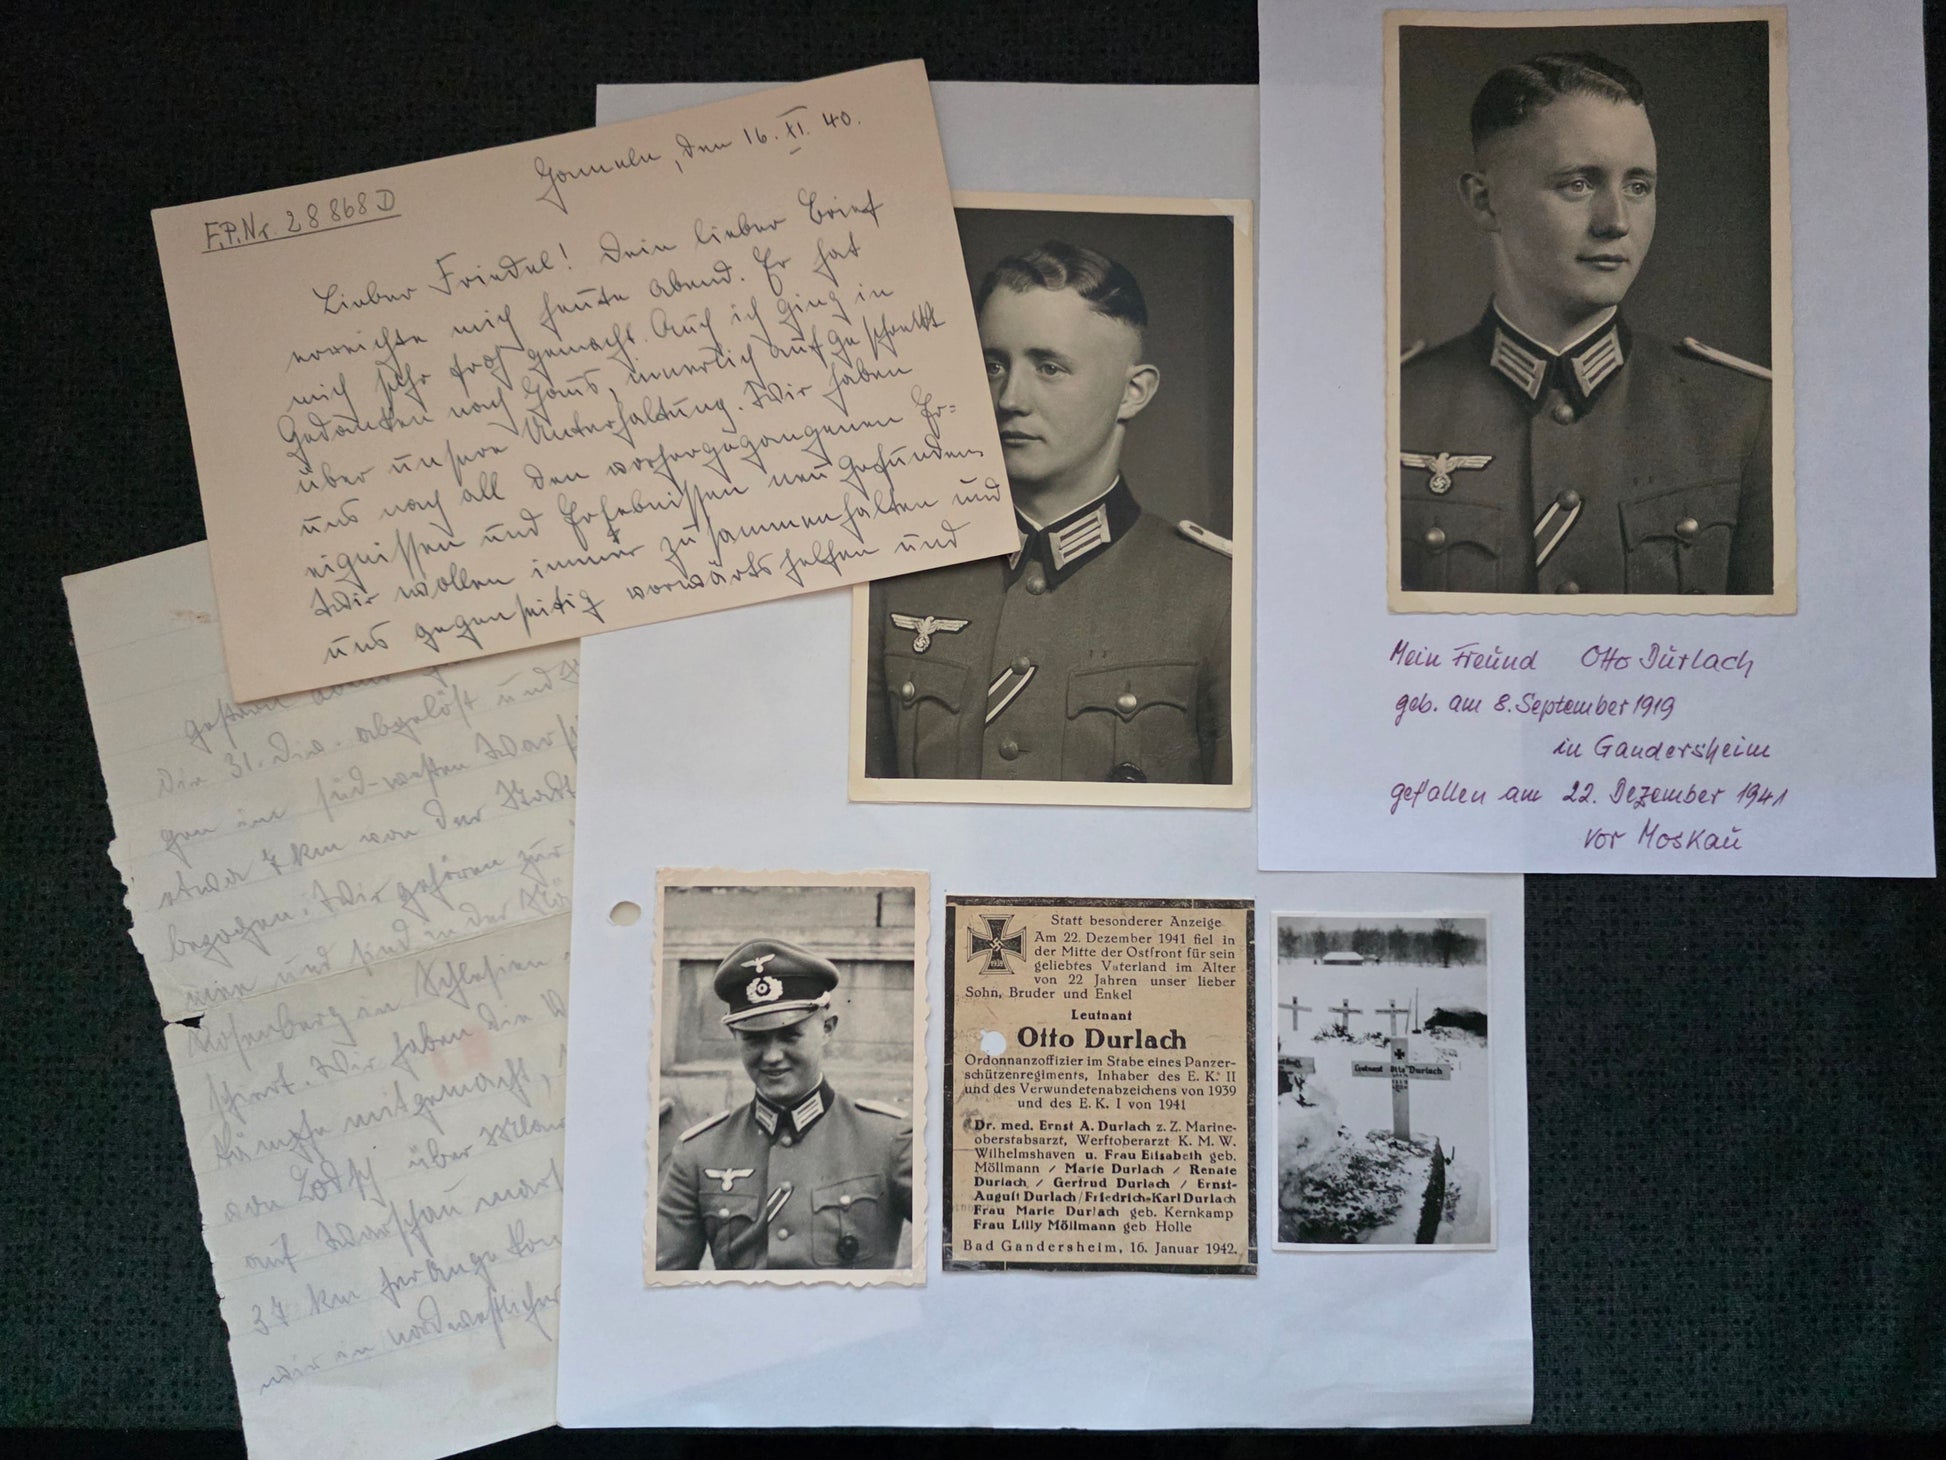 F.P.Nr. 28 868 D
Gommeln, den 16. XI. 40.
Lieber Friedel! Dein lieber Brief
erreichte mich heute Abend. Er hat
mich sehr froh gemacht. Auch ich ging in
Gedanken nach Haus, innerlich aufgeschreckt
über unsere Unterhaltung. Wir haben
uns nach all den vorhergegangenen Er=
eignissen und Erlebnissen neu gefunden.
Wir wollen immer zusammenhalten und
uns gegenseitig vorwärts helfen und
gestern
Die 31. Div. abgelöst und
gen im süd-westen
etwa 7 km von der Stadt
bezogen. Wir gehören zur
und sind in der
Rosenberg in Schlesien
schiert. Wir haben die
Kämpfe mitgemacht,
von Lodsch über
auf Warschau
37 km
wir in nordwestlicher
Mein Freund Otto Durlach
geb. am 8. September 1919
in Gandersheim
gefallen am 22. Dezember 1941
vor Moskau
Statt besonderer Anzeige
Am 22. Dezember 1941 fiel in
der Mitte der Ostfront für sein
geliebtes Vaterland im Alter
von 22 Jahren unser lieber
Sohn, Bruder und Enkel
Leutnant
Otto Durlach
Ordonnanzoffizier im Stabe eines Panzer-
schützenregiments, Inhaber des E. K. II
und des Verwundetenabzeichens von 1939
und des E. K. I von 1941
Dr. med. Ernst A. Durlach z. Z. Marine-
oberstabsarzt, Werftoberarzt K. M. W.
Wilhelmshaven u. Frau Elisabeth geb.
Möllmann / Marie Durlach / Renate
Durlach / Gertrud Durlach / Ernst-
August Durlach / Friedrich-Karl Durlach
Frau Marie Durlach geb. Kernkamp
Frau Lilly Möllmann geb Holle
Bad Gandersheim, 16. Januar 1942.
Leutnant Otto Durlach